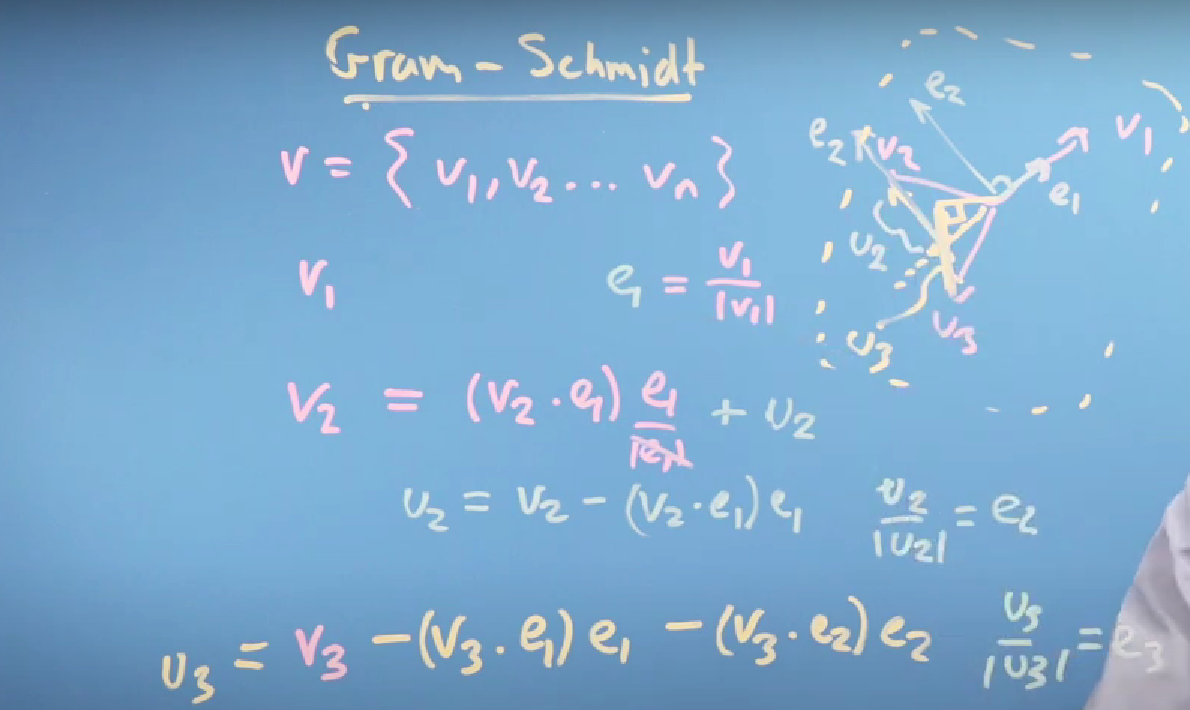 Gram - Schmidt
v = { v₁, v₂ ... vₙ }
v₁ e₁ = v₁/|v₁|
v₂ = (v₂ · e₁) e₁/|e₁| + u₂
u₂ = v₂ - (v₂ · e₁) e₁ u₂/|u₂| = e₂
u₃ = v₃ - (v₃ · e₁) e₁ - (v₃ · e₂) e₂ u₃/|u₃| = e₃
e₂
v₁
e₂ v₂
e₁
u₂
v₃
u₃